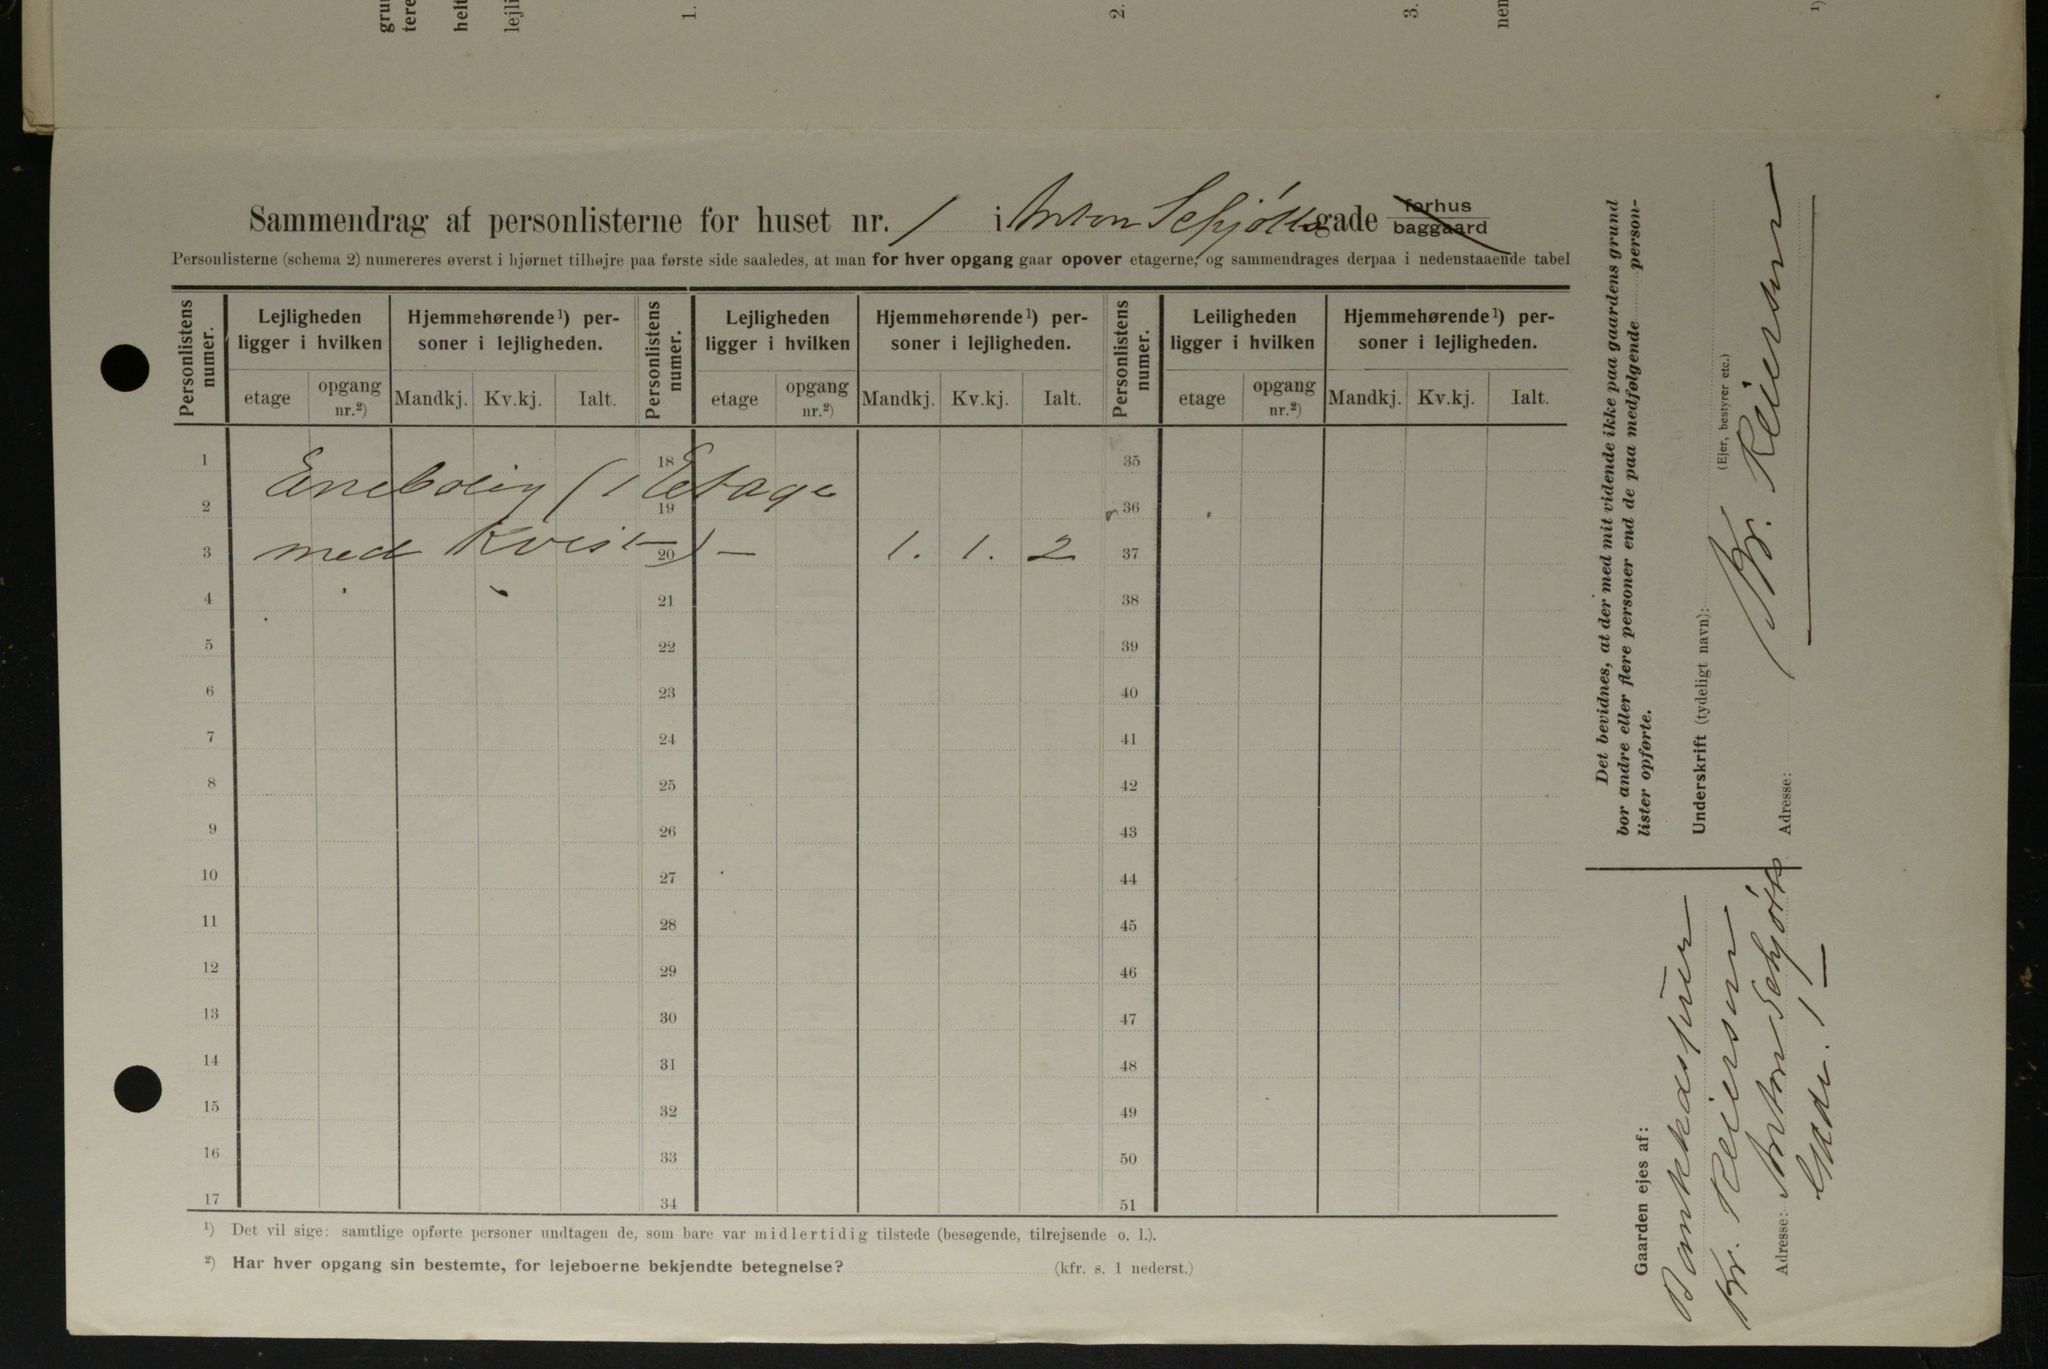 grun
tere
helt
lejli
1.
2.
3.
nem
1)
Sammendrag af personlisterne for huset nr. 1 i Anton Schjøtts gade forhus baggaard
Personlisterne (schema 2) numereres øverst i hjørnet tilhøjre paa første side saaledes, at man for hver opgang gaar opover etagerne, og sammendrages derpaa i nedenstaaende tabel
Personlistens numer. Lejligheden ligger i hvilken Hjemmehørende¹) personer i lejligheden. Personlistens numer. Lejligheden ligger i hvilken Hjemmehørende¹) personer i lejligheden. Personlistens numer. Leiligheden ligger i hvilken Hjemmehørende¹) personer i lejligheden.
etage opgang nr.²) Mandkj. Kv.kj. Ialt. etage opgang nr.²) Mandkj. Kv.kj. Ialt. etage opgang nr.²) Mandkj. Kv.kj. Ialt.
1 18 35
Enebolig (1 Etage
2 19 36
3 med Kvist) 20 — 1. 1. 2 37
4 21 38
5 22 39
6 23 40
7 24 41
8 25 42
9 26 43
10 27 44
11 28 45
12 29 46
13 30 47
14 31 48
15 32 49
16 33 50
17 34 51
¹) Det vil sige: samtlige opførte personer undtagen de, som bare var midlertidig tilstede (besøgende, tilrejsende o. l.).
²) Har hver opgang sin bestemte, for lejeboerne bekjendte betegnelse? (kfr. s. 1 nederst.)
Det bevidnes, at der med mit vidende ikke paa gaardens grund
bor andre eller flere personer end de paa medfølgende person-
lister opførte.
Underskrift (tydeligt navn):
(Ejer, bestyrer etc.)
Kr. Reiersen
Adresse:
Gaarden ejes af:
Bankkasserer
Kr. Reiersen
Adresse: Anton Schjøtts
Gade. 1